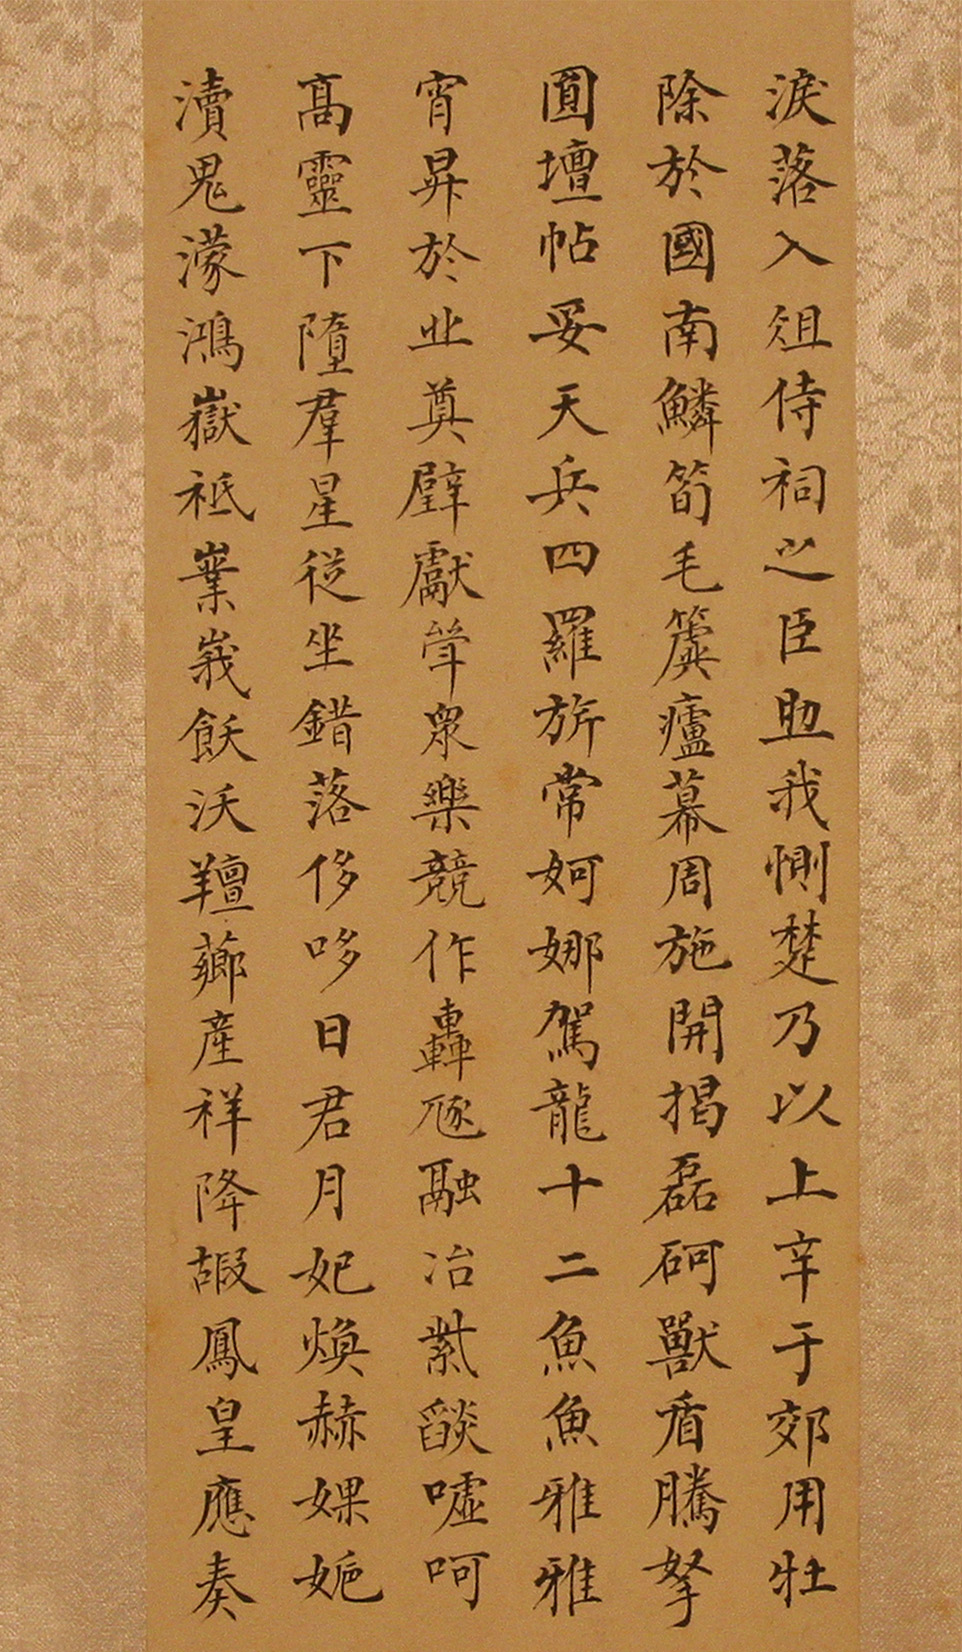 淚落入俎侍祠之臣助我惻楚乃以上辛于郊用牡
除於國南鱗筍毛簴廬幕周施開揭磊砢獸盾騰拏
圓壇帖妥天兵四羅旂常妸娜駕龍十二魚魚雅雅
宵昇於丠奠璧獻斝衆樂競作轟豗融冶紫燄噓呵
髙靈下墮羣星從坐錯落侈哆日君月妃煥赫婐
瀆鬼濛鴻嶽祗嶪峩飫沃羶薌産祥降嘏鳳皇應奏